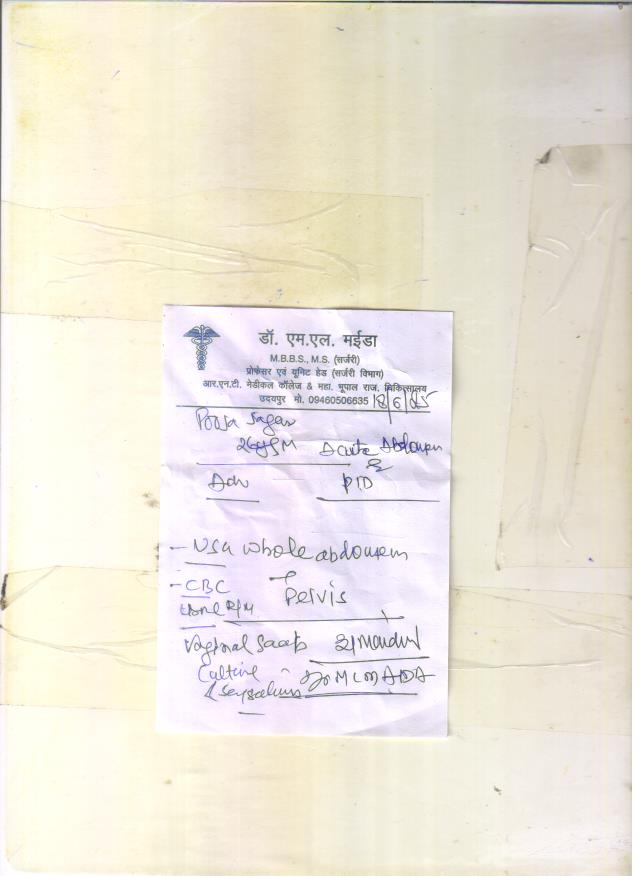 डॉ. एम.एल. मईडा
M.B.B.S., M.S. (सर्जरी)
प्रोफेसर एवं यूनिट हेड (सर्जरी विभाग)
आर.एन.टी. मेडीकल कॉलेज & महा. भूपाल राज. चिकित्सालय
उदयपुर मो. 09460506635 18/6/25
Pooja Sagar
Acute Abdomen
&
Adv PID
- USG whole abdomen
- CBC Pelvis
Urine R/M
Vaginal Swab
Culture
& Sensitivity